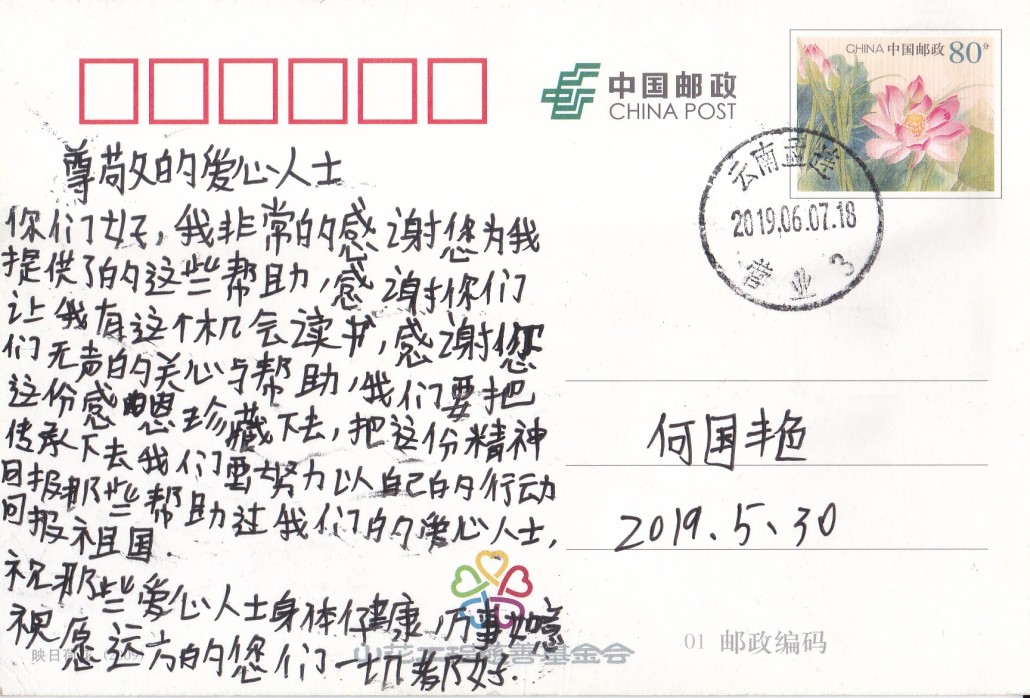 CHINA 中国邮政 80分
中国邮政
CHINA POST
云南孟连
2019.06.07.18
营业 3
尊敬的爱心人士
你们好，我非常的感谢您为我
提供了的这些帮助，感谢你们
让我有这个机会读书，感谢您
们无声的关心与帮助，我们要把
这份感恩珍藏下去，把这份精神
传承下去我们要努力以自己的行动
回报那些帮助过我们的爱心人士，
回报祖国.
祝那些爱心人士身体健康，万事如意
祝愿远方的您们一切都好.
何国丰色
2019.5、30
慈善基金会
01 邮政编码